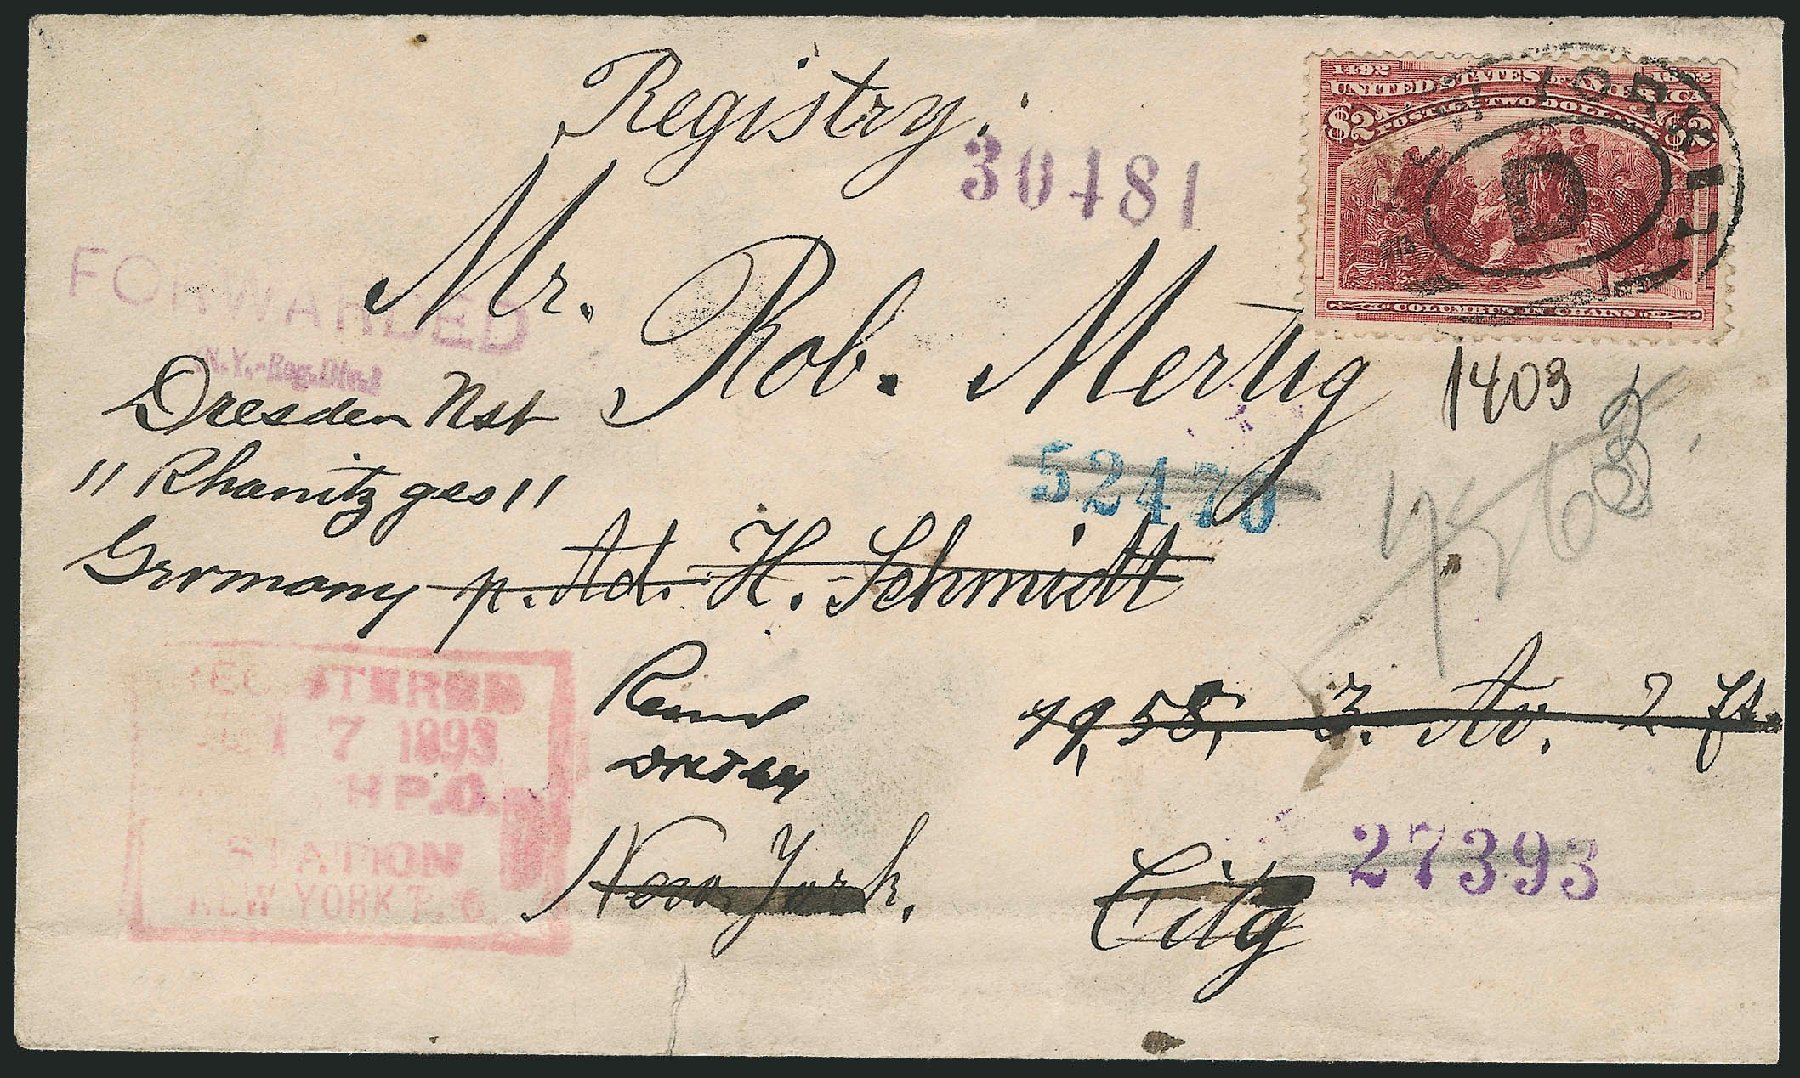 Registry.
30481
1492
UNITED STATES OF AMERICA
POSTAGE TWO DOLLARS
$2 $2
D
COLUMBUS IN CHAINS
FORWARDED
N.Y.-Reg.Div.
Mr. Rob. Mertig
1403
Dresden Nst
" Rhanitzges"
Germany
52470
p. Ad. H. Schmidt
REGISTERED
7 1893
H P.O.
STATION
NEW YORK
1958, 3. Av. 2 fl.
New York.
City
27393